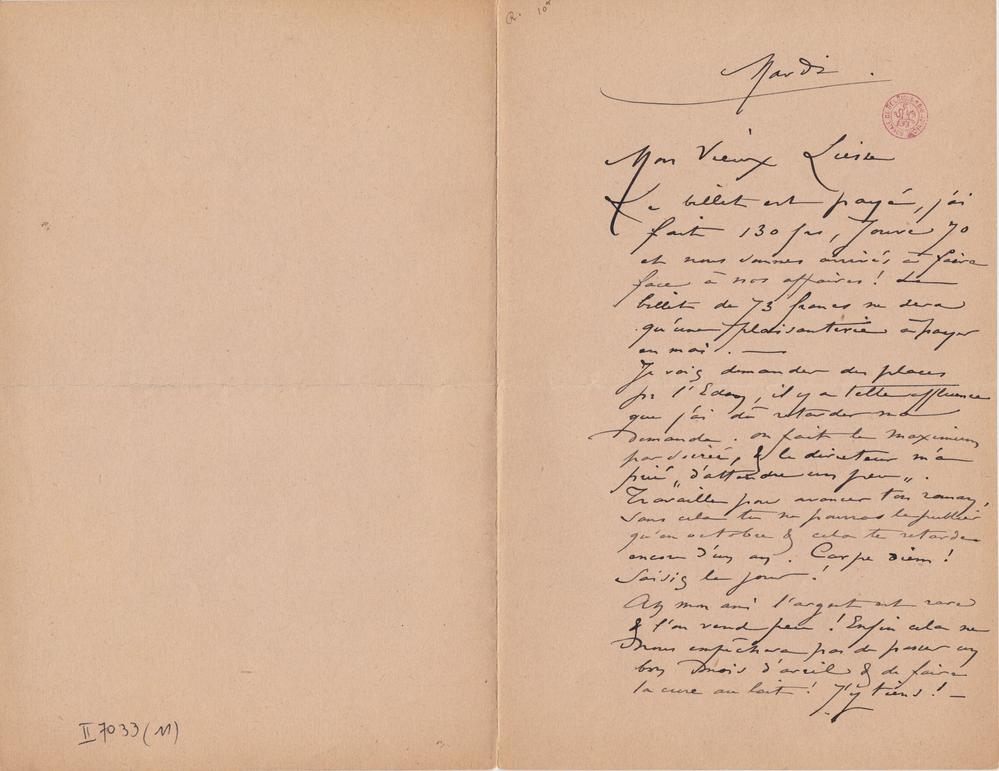 Mardi.
Mon Vieux Liesse
Le billet est payé, j'ai
fait 130 frs, Jouve 70
et nous sommes arrivés à faire
face à nos affaires ! Le
billet de 73 francs ne sera
qu'une plaisanterie à payer
en mai. —
Je vais demander des places
pr l'Eden, il y a telle affluence
que j'ai dû retarder ma
demande. on fait le maximum
par soirée, & le directeur m'a
prié „d'attendre un peu„.
Travaille pour avancer ton roman,
sans cela tu ne pourras le publier
qu'en octobre & cela te retarde
encore d'un an. Carpe diem !
Saisis le jour !
Ah mon ami l'argent est rare
& l'on vend peu ! Enfin cela ne
nous empêchera pas de passer un
bon mois d'avril & de faire
la cure au lait ! J'y tiens ! —
II 7033 (11)